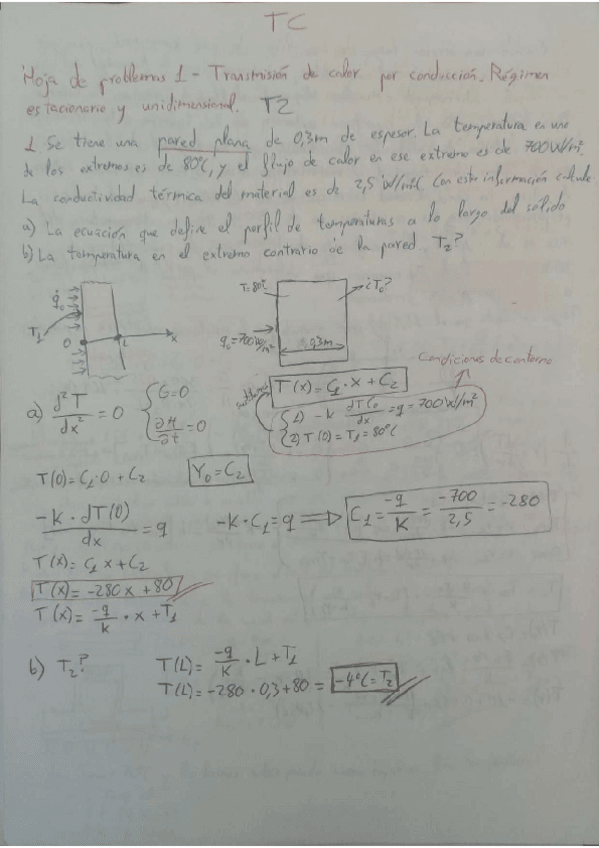 TC
Hoja de problemas 1 - Transmisión de calor por conducción. Régimen
estacionario y unidimensional. T2
1 Se tiene una pared plana de 0,3m de espesor. La temperatura en uno
de los extremos es de 80ºC, y el flujo de calor en ese extremo es de 700W/m².
La conductividad térmica del material es de 2,5 W/mºC. Con esta información calcule
a) La ecuación que define el perfil de temperaturas a lo largo del sólido
b) La temperatura en el extremo contrario de la pared. T₂?
q̇₀
T₁
0 L x
T=80ºC ¿T₀?
q₀=700W/m² 0,3m
Condiciones de contorno
a) d²T/dx² = 0 { G=0 ∂H/∂t = 0
T(x) = C₁ · x + C₂
1) -k dT(0)/dx = q = 700W/m²
2) T(0) = T₁ = 80ºC
T(0) = C₁·0 + C₂ Y₀ = C₂
-k · dT(0)/dx = q -k · C₁ = q ⟹ C₁ = -q/k = -700/2,5 = -280
T(x) = C₁ x + C₂
T(x) = -280x + 80
T(x) = -q/k · x + T₁
b) T₂? T(L) = -q/k · L + T₁
T(L) = -280 · 0,3 + 80 = -4ºC = T₂